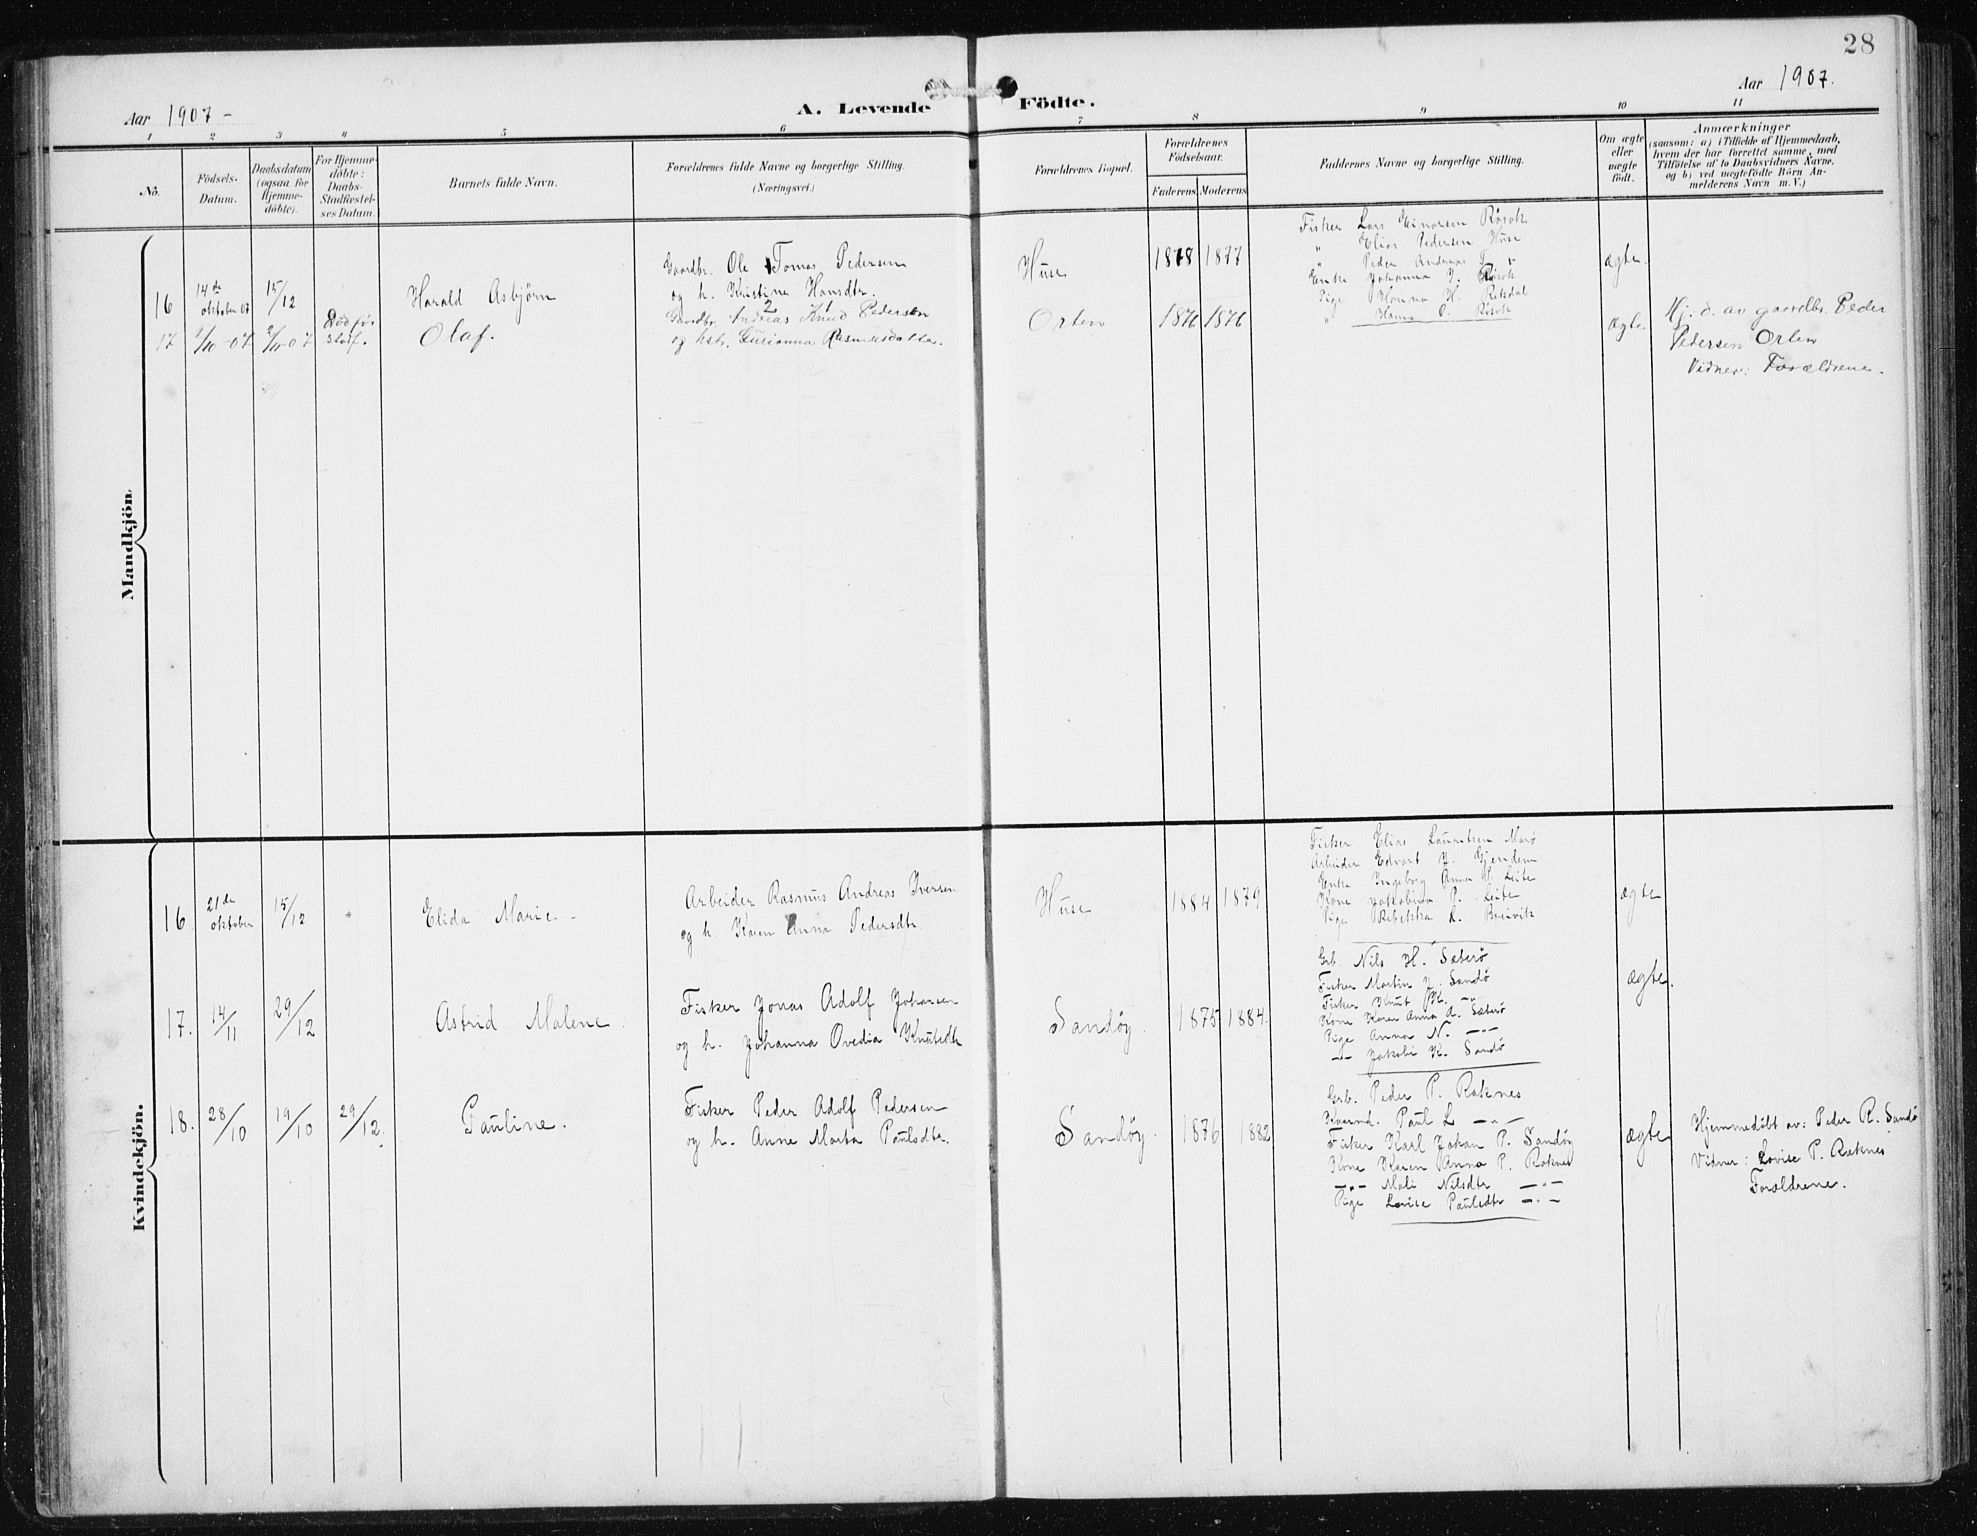 28
Aar 1907 -
A. Levende Födte.
Aar 1907.
1 2 3 4 5 6 7 8 9 10 11
No.
Födsels-
Datum.
Daabsdatum
(ogsaa for
Hjemme-
döbte).
For Hjemme-
döbte:
Daabs-
Stadfæstel-
ses Datum.
Barnets fulde Navn.
Forældrenes fulde Navne og borgerlige Stilling.
(Næringsvei.)
Forældrenes Bopæl.
Forældrenes
Födselsaar.
Faderens
Moderens
Faddernes Navne og borgerlige Stilling.
Om ægte
eller
uægte
födt.
Anmærkninger
(saasom: a) i Tilfælde af Hjemmedaab,
hvem der har forrettet samme, med
Tilföielse af to Daabsvidners Navne.
og b) ved uægtefödte Börn An-
melderens Navn m. V.)
Mandkjön.
16
14de
oktober 07
15/12
Harald Asbjörn
Gaardbr. Ole Tomas Pedersen
og h. Kristine Hansdtr.
Huse
1878 1877
Fisker Lars Einarsen Rösok
" Elias Pedersen Huse
" Peder Andreas
Enke Johanna J. Rösok
Pige Hanna H. Reksdal
" Hanna Rösok
ægte
17
1/10-07
2/10-07
Död før
stadf.
Olaf.
Gaardbr. Andreas Knud Pedersen
og hstr. Gurianna Rasmusdatter.
Orten
1876 1876
ægte
Hj. d. av gaardbr. Peder
Pedersen Orten
Vidner: Forældrene.
Kvindekjön.
16
21de
oktober
15/12
Elida Marie
Arbeider Rasmus Andreas Iversen
og h. Karen Anna Pedersdtr.
Huse
1884 1879
Fisker Elias Lauritsen Marö
Arbeider Edvart J. Gjendem
Enke Ingeborg Anna Leite
Kone Jakobina P. Leite
Pige Rebekka L. Breivik
ægte
17.
14/11
29/12
Astrid Malene
Fisker Jonas Adolf Johansen
og h. Johanna Ovedia Knutsdtr
Sandöy.
1875 1884.
Grb. Nils H. Sæterö
Fisker Martin J. Sandö
Fisker Knut M. -"-
Kone Karen Anna A. Sæterö
Pige Anna N. -"-
-"- Jakobi K. Sandö
ægte.
18.
28/10
19/10
29/12.
Pauline.
Fisker Peder Adolf Pedersen
og h. Anne Marta Paulsdtr.
Sandöy.
1876 1882
Grb. Peder P. Raknes
Kaarmd. Paul L -"-
Fisker Karl Johan P. Sandöy
Kone Karen Anna P. Raknes
-"- Mali Nilsdtr -"-
Pige Lovise Paulsdtr -"-
ægte
Hjemmedöbt av: Peder R. Sandö
Vidner: Lovise P. Raknes
Forældrene.